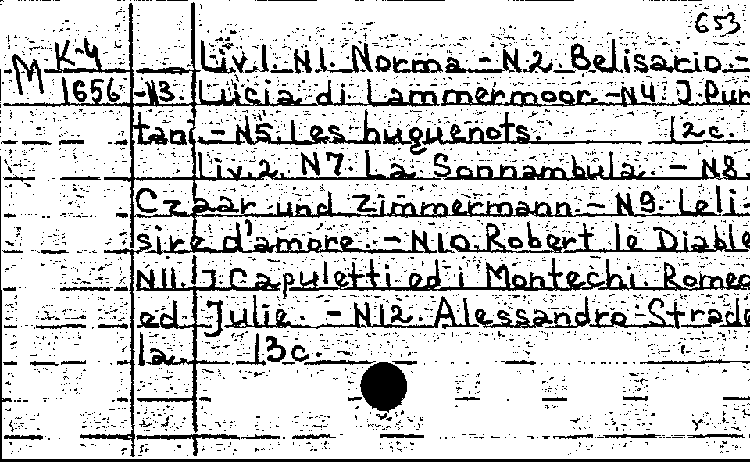 653
M K-4 Liv.1. N1. Norma - N2. Belisario -
1656 -N3. Lucia di Lammermoor. -N4. J. Pur
tani. - N5. Les huguenots. 12c.
Liv.2. N7. La Sonnambula. - N8.
Czaar und Zimmermann. - N9. Leli-
sire d'amore. - N10. Robert le Diable
N11. J. Capuletti ed i Montechi. Romeo
ed Julie. - N12. Alessandro Strade
la. 13c.